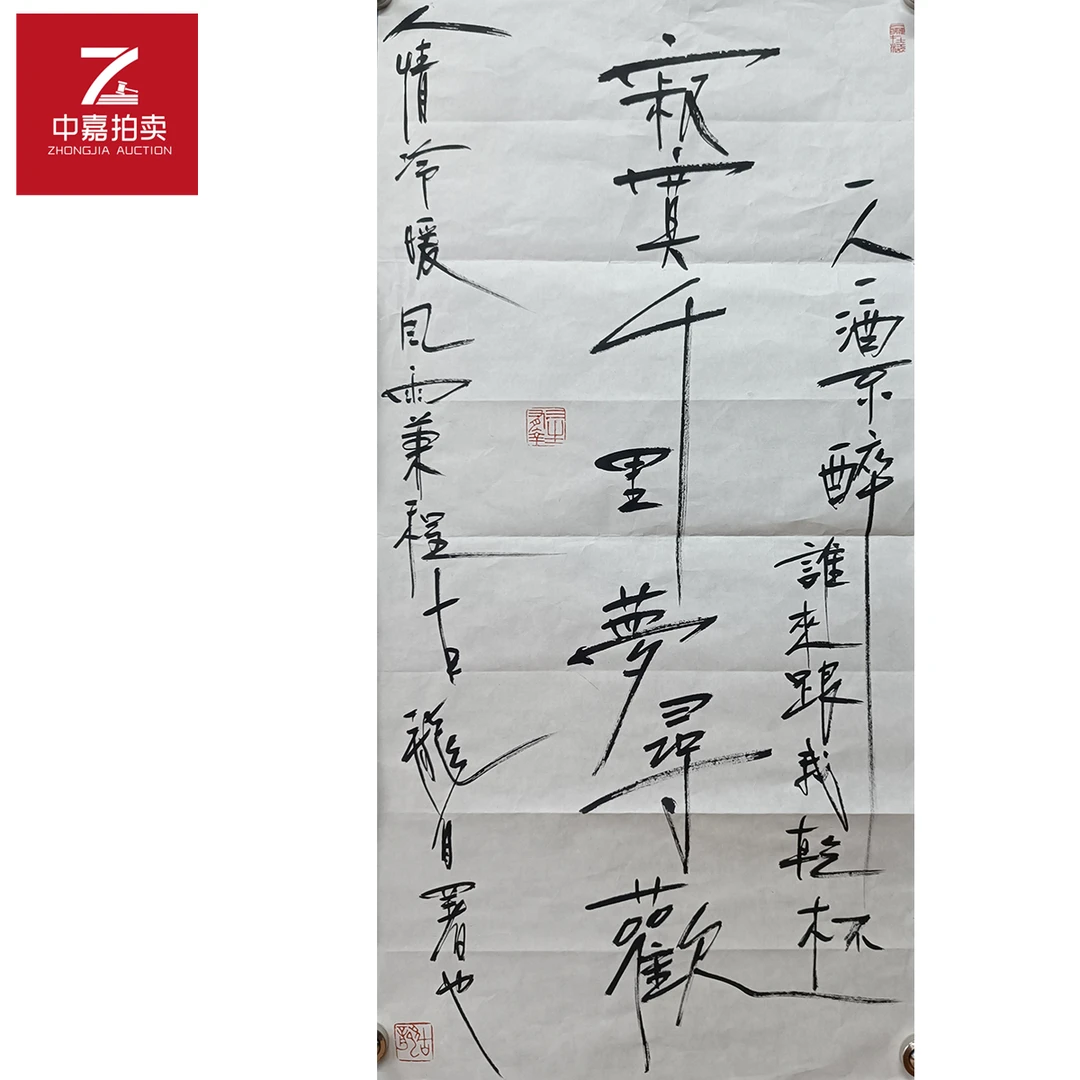 中嘉拍卖
ZHONGJIA AUCTION
一人一酒不醉誰來跟我乾杯
寂寞千里夢尋歡
人情冷暖風雨兼程古龍自署也